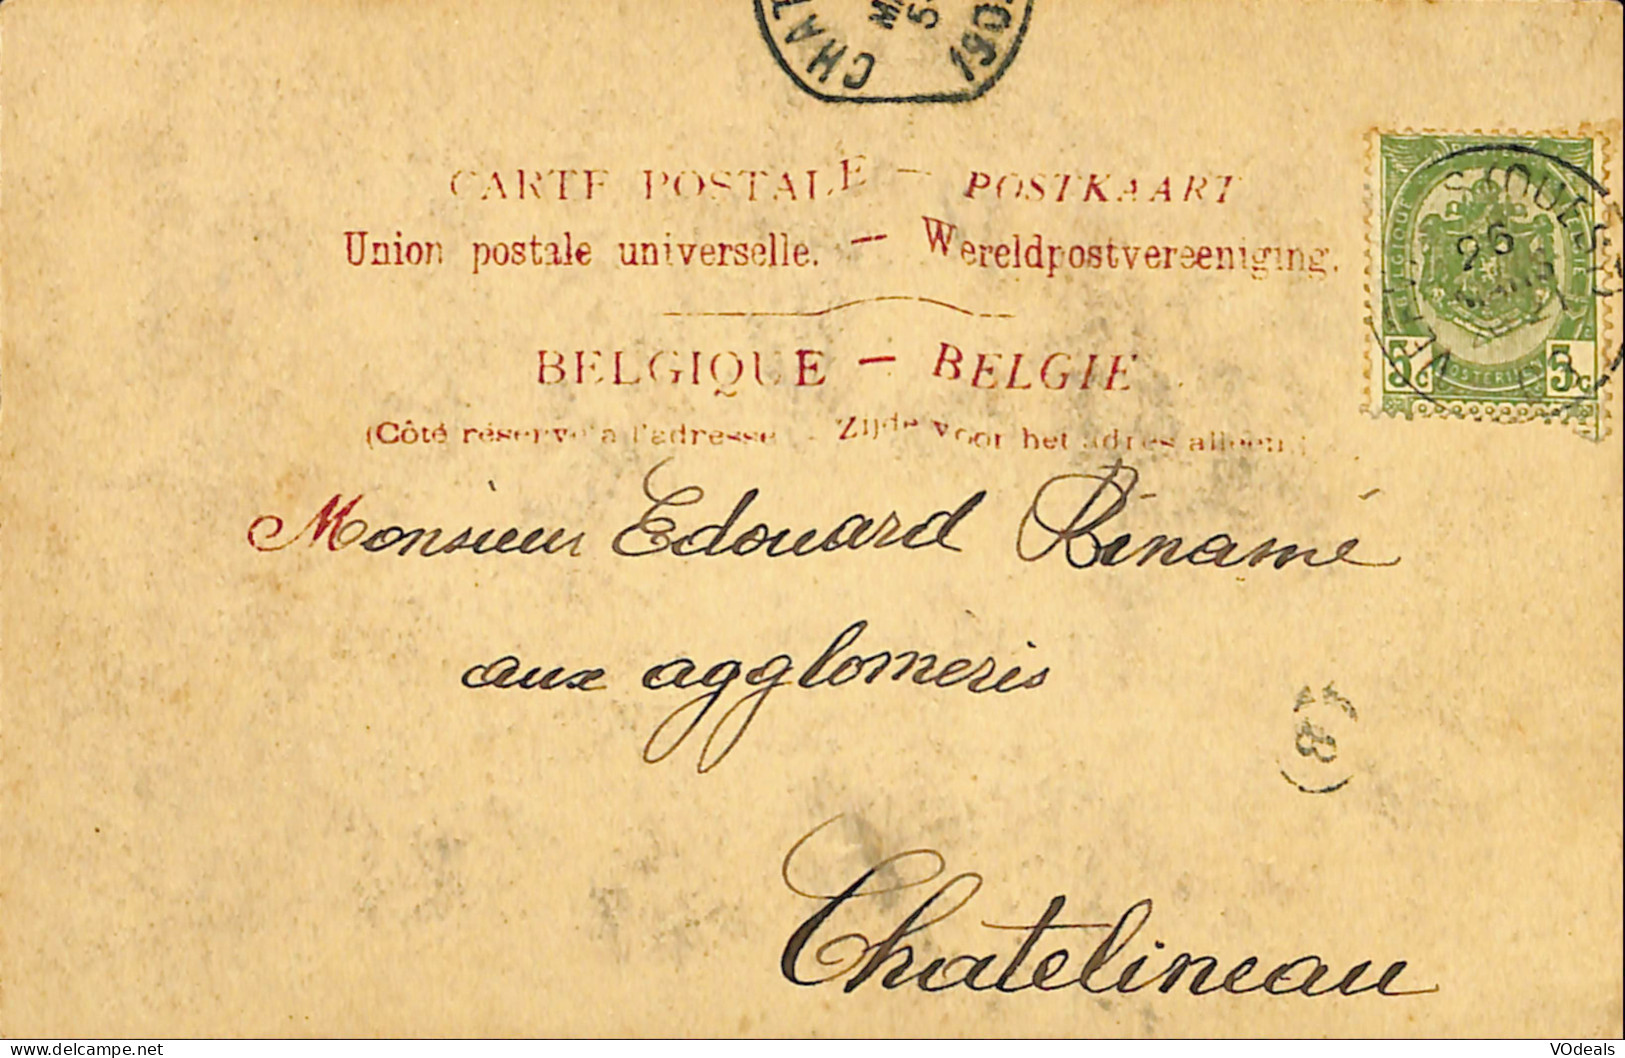 CARTE POSTALE — POSTKAART
Union postale universelle. — Wereldpostvereeniging.
BELGIQUE — BELGIE
(Côté réservé à l'adresse. - Zijde voor het adres alleen.)
Monsieur Edouard Binamé
aux agglomeris
Chatelineau
(OUEST)
26
MARS
5c 5c
BELGIQUE
8
CHAT
190
5
www.delcampe.net
VOdeals